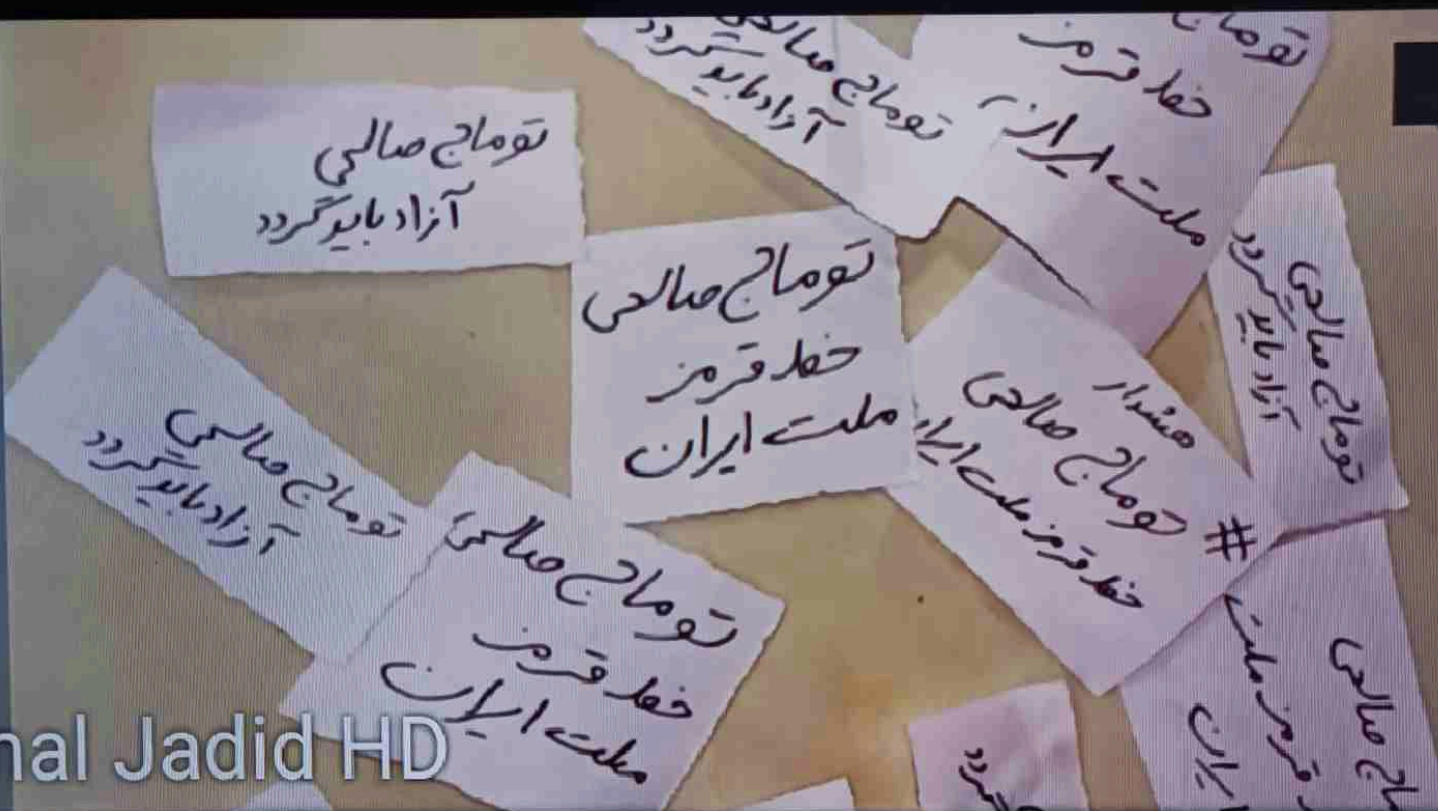 توماج صالحی
آزاد باید گردد
توماج صالحی
آزاد باید گردد
توماج
خط قرمز
ملت ایران
توماج صالحی
آزاد باید گردد
توماج صالحی
خط قرمز
ملت ایران
هشدار
#توماج صالحی
خط قرمز ملت ایران
توماج صالحی
آزاد باید گردد
توماج صالحی
خط قرمز
ملت ایران
صالحی
قرمز ملت
ایران
گردد
Jadid HD